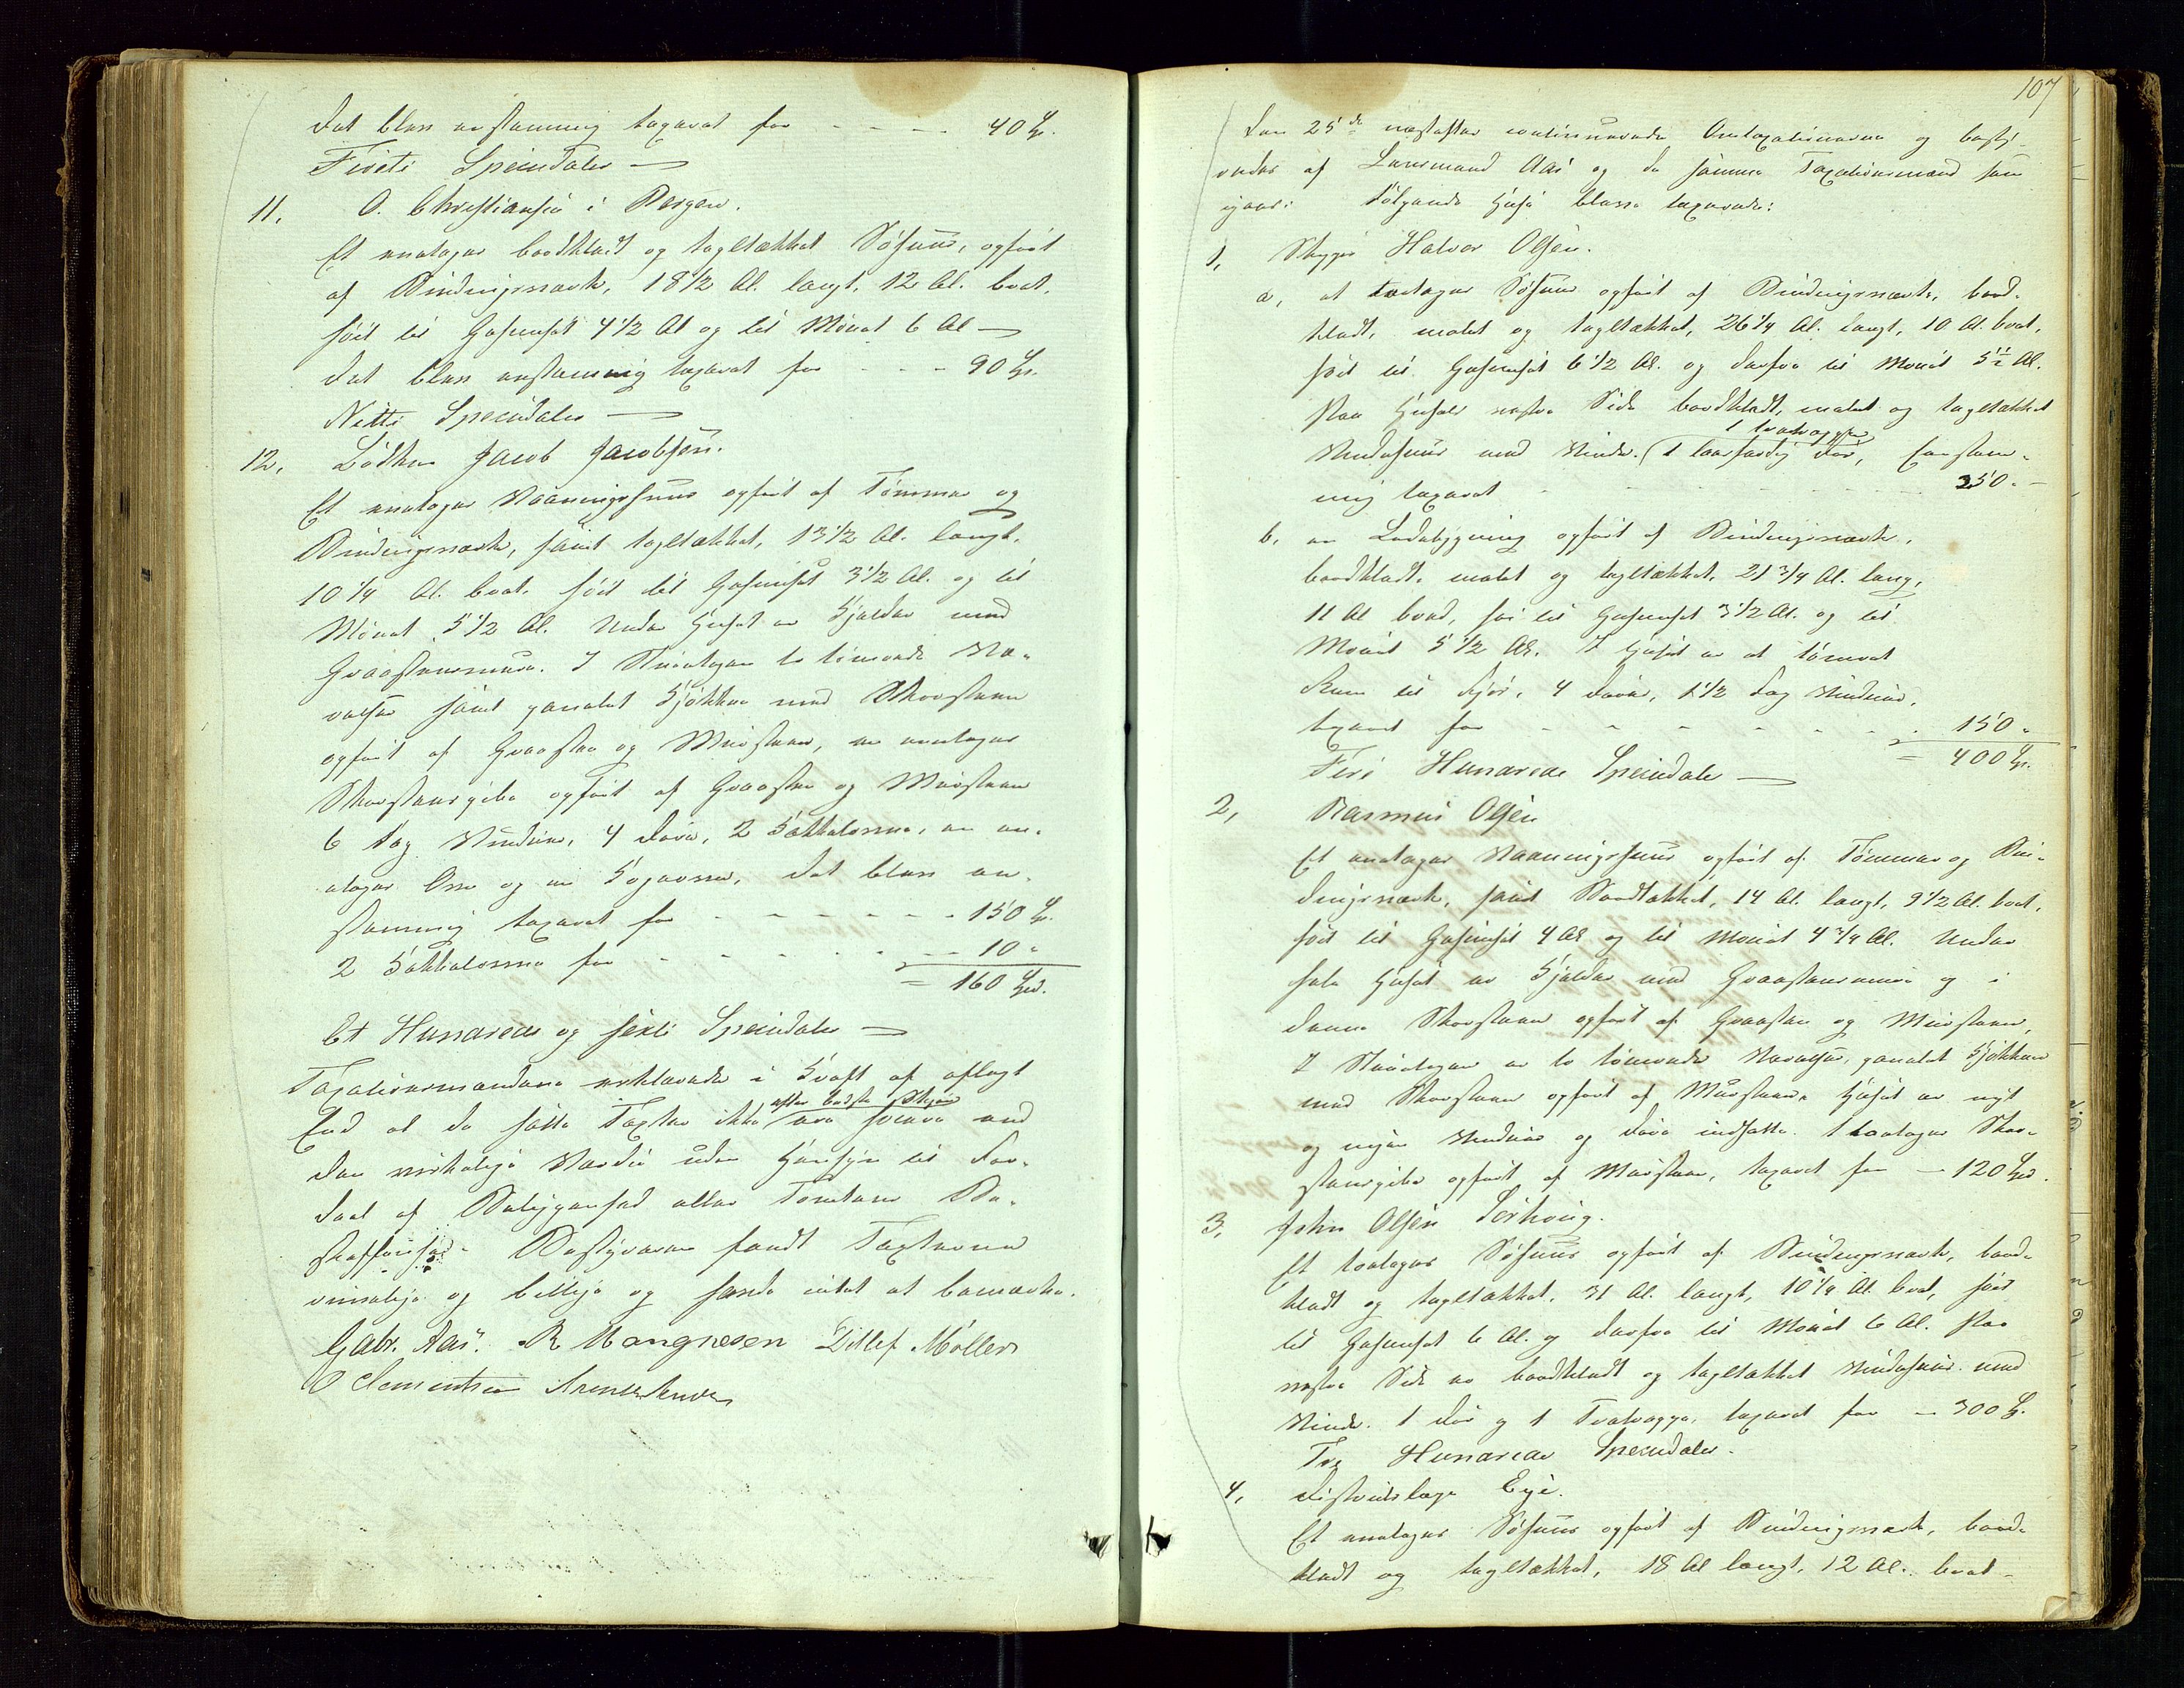 det blev enstemmig taxeret for - - - - 40 Sp.
Fireti Speciedaler —
11. O. Christiansen i Bergen.
Et enetages bordklædt og tagltækket Søhuus, opført
af Bindingsværk, 18 1/2 Al. langt, 12 Al. bredt,
høit til Gesimset 4 1/2 Al og til Mønet 6 Al —
det blev enstemmig taxeret for - - - 90 Sp.
Nitti Speciedaler —
12. Lodken Jacob Jacobsen.
Et enetages Vaaningshuus opført af Tømmer og
Bindingsværk, samt tagltækket, 13 1/2 Al. langt,
10 1/4 Al. bredt, høit til Gesimset 3 1/2 Al. og til
Mønet 5 1/2 Al. Under Huset er Kjelder med
Graasteensmure. I Stueetagen to tømrede Væ-
relser samt panelet Kjøkken med Skorsteen
opført af Graasten og Muursteen, en enetages
Skorsteenspibe opført af Graasten og Muursteen
6 Fag Vinduer, 4 Døre, 2 Kakkelovne, en en-
etages Ovn og en Kogeovn, det blev en-
stemmig taxeret for - - - - - - 150 Sp.
2 Kakkelovne for - - - - - - - 10 "
= 160 Spd.
Et Hundrede og sexti Speciedaler —
Taxationsmændene erklærede i Kraft af aflagt
Eed at de satte Taxter ikke efter bedste Skjøn ere høiere end
den virkelige Værdie uden Hensyn til For-
deel af Beliggenhed eller Tomtens Be-
skaffenhed. Bestyreren fandt Taxterne
rimelige og billige og havde intet at bemærke.
Gabr. Aas. R Mangnesen Ditlef Møller
O Clementsen
107
Den 25de næstefter continuerede Omtaxationerne og besty-
redes af Lensmand Aas og de samme Taxationsmænd som
igaar. Følgende Huse bleve taxerede:
1, Skipper Halvor Olsen.
a, et toetages Søhuus opført af Bindingsværk, bord-
klædt, malet og tagltækket, 26 1/4 Al. langt, 10 Al. bredt,
høit til Gesimset 6 1/2 Al. og derfra til Mønet 5 1/2 Al.
Paa Husets vestre Side bordklædt, malet og tagltækket
Vindehuus med Vinde. 1 trætrappe 1 Dør, Eenstem-
mig taxeret - - - - - - 250. —
b, en Ladebygning opført af Bindingsværk,
bordklædt, malet og tagltækket, 21 3/4 Al. lang,
11 Al bred, høi til Gesimset 3 1/2 Al. og til
Mønet 5 1/2 Al. I Huset er et tømret
Rum til Kjør, 4 Døre, 1 1/2 Fag Vinduer,
taxeret for - - - - - - 150 "
= 400 Sp.
Fire Hundrede Speciedaler —
2, Rasmus Olsen
Et enetages Vaaningshuus opført af Tømmer og Bin-
dingsværk, samt Bordtækket, 14 Al. langt, 9 1/2 Al. bredt,
høit til Gesimset 4 Al og til Mønet 4 3/4 Al. Under
hele Huset er Kjelder med Graasteensmure og i
denne Skorsteen opført af Graasten og Muursteen,
I Stueetagen er to tømrede Værelser, panelet Kjøkken
med Skorsteen opført af Muursteen. Huset er nyt
og ingen Vinduer og Døre indsatte. 1 toetages Skor-
steenspibe opført af Muursteen, taxeret for — 120 Spd.
3, John Olsen Sørhoug.
Et toetages Søhuus opført af Bindingsværk, bord-
klædt og tagltækket, 31 Al. langt, 10 1/4 Al. bredt, høit
til Gesimset 6 Al. og derfra til Mønet 6 Al. Paa
vestre Side er bordklædt og tagltækket Vindehuus med
Vinde. 1 Dør og 1 Trætrappe, taxeret for — 300 Sp.
Tre Hundrede Speciedaler.
4, Districtslæge Eyé.
Et enetages Søhuus opført af Bindingsværk, bord-
klædt og tagltækket, 18 Al langt, 12 Al. bredt